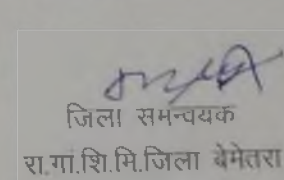 जिला समन्वयक
रा.गां.शि.मि.जिला बेमेतरा